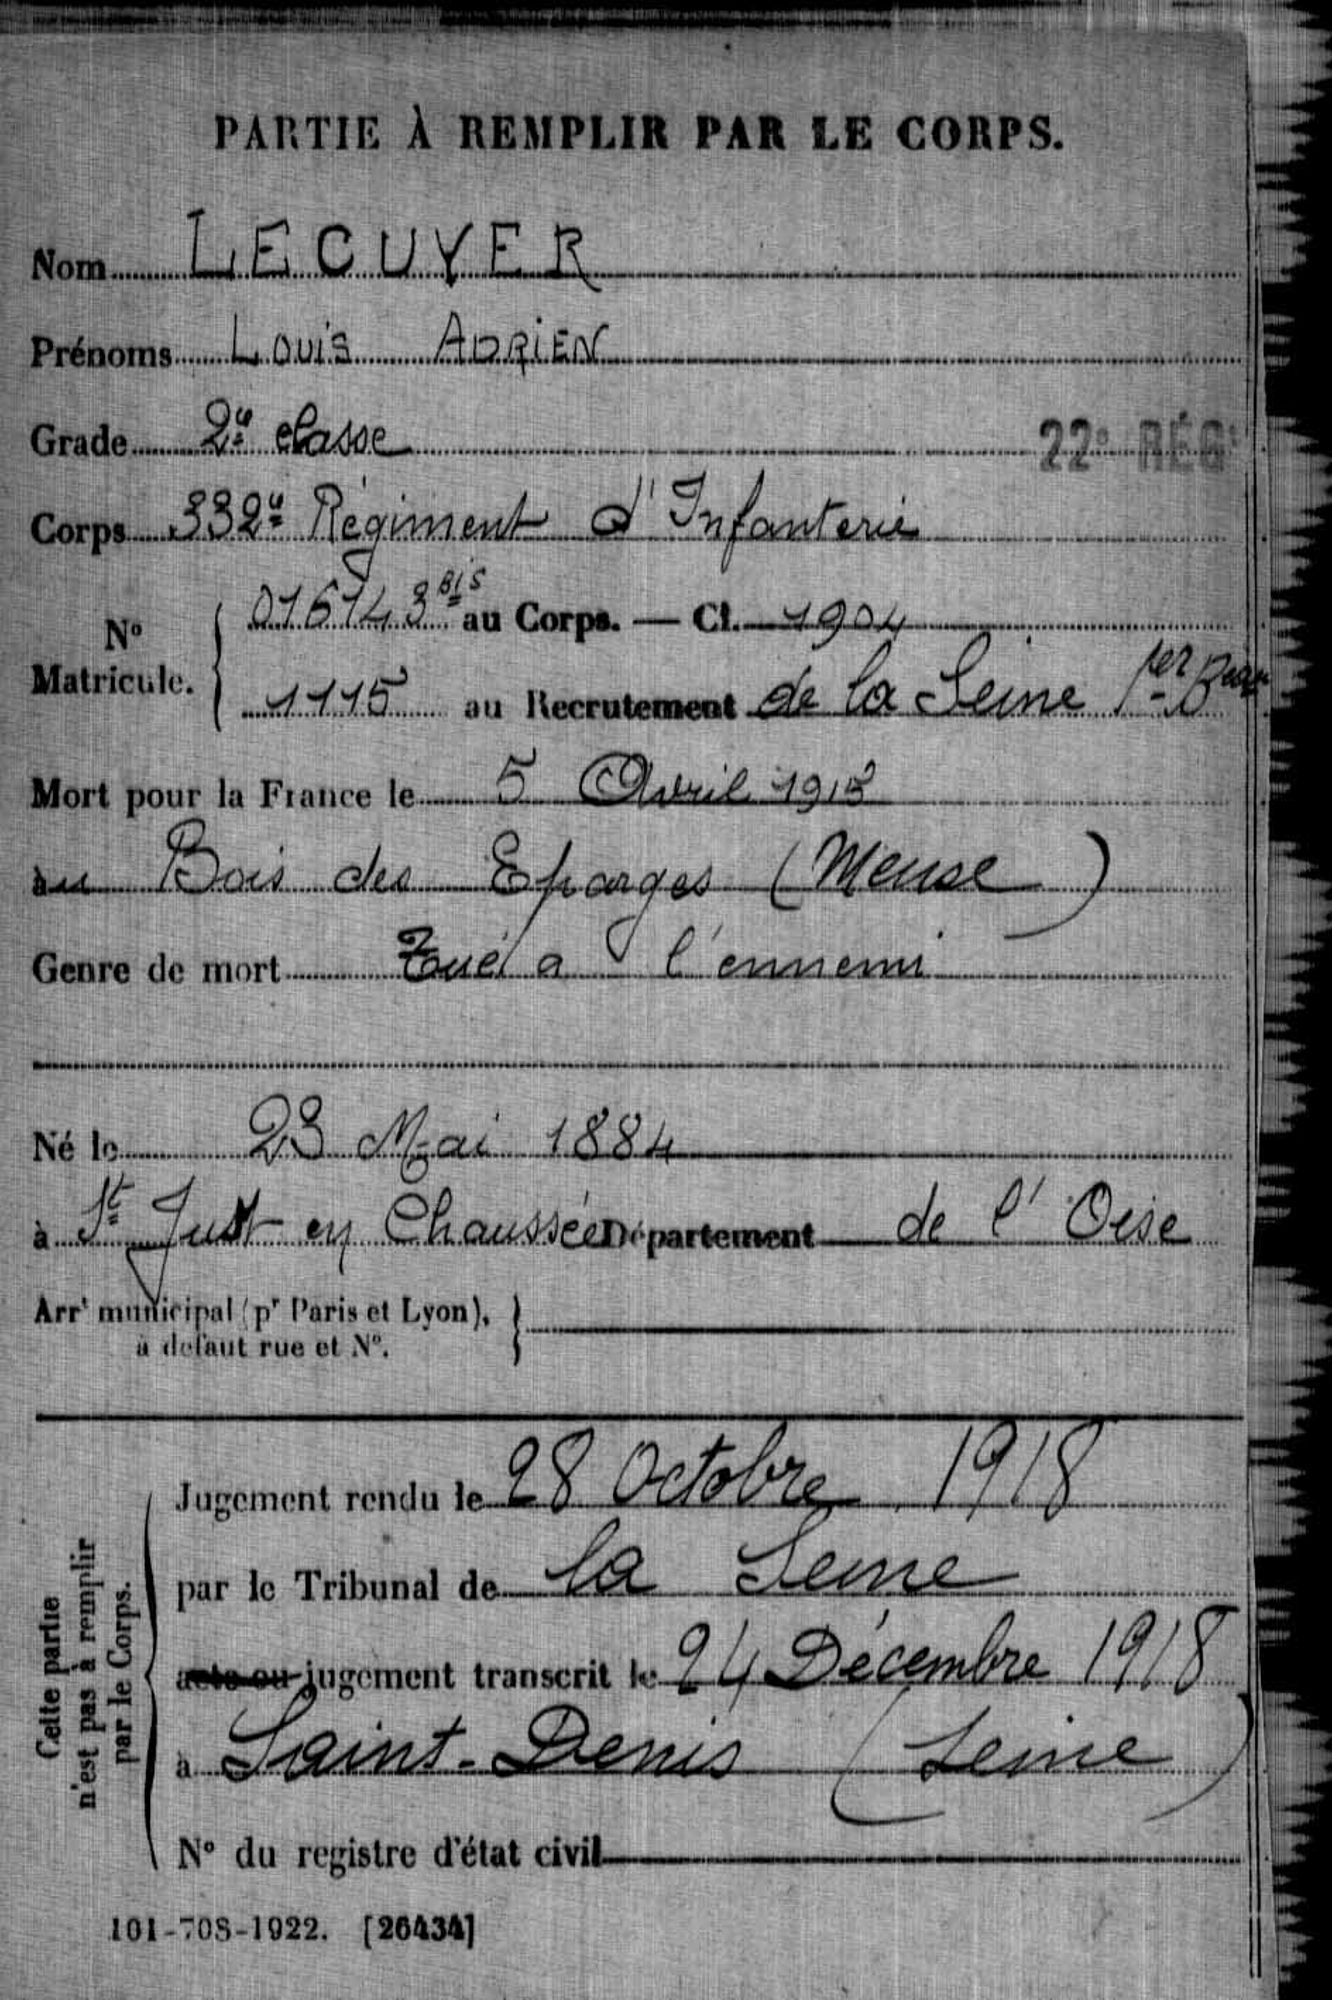 PARTIE À REMPLIR PAR LE CORPS.
Nom LECUYER
Prénoms Louis ADRIEN
Grade 2e classe
22e RÉGt
Corps 332e Régiment d'Infanterie
No Matricule. { 016143 Bis au Corps. — Cl. 1904
1115 au Recrutement de la Seine 1er
Mort pour la France le 5 Avril 1915
au Bois des Eparges (Meuse)
Genre de mort Tué a l'ennemi
Né le 23 Mai 1884
à St Just en Chaussée Département de l'Oise
Arrt municipal (pr Paris et Lyon), }
à défaut rue et No.
Cette partie
n'est pas à remplir
par le Corps.
Jugement rendu le 28 Octobre 1918
par le Tribunal de la Seine
acte ou jugement transcrit le 24 Décembre 1918
à Saint-Denis (Seine)
No du registre d'état civil
101-708-1922. [26434]